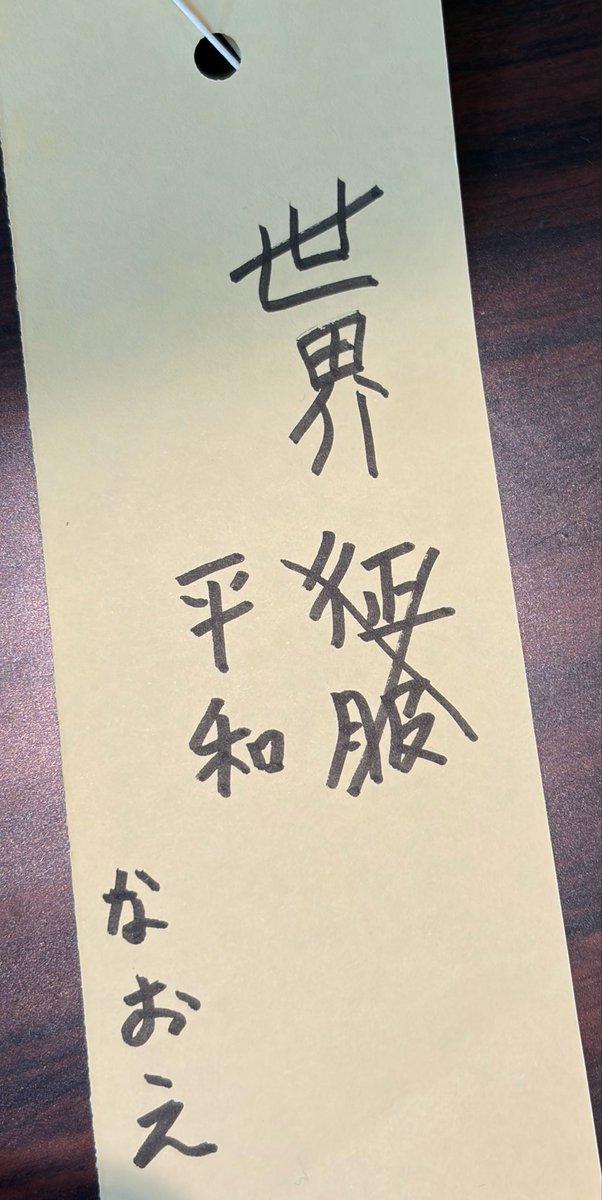 世界征服
平和
なおえ